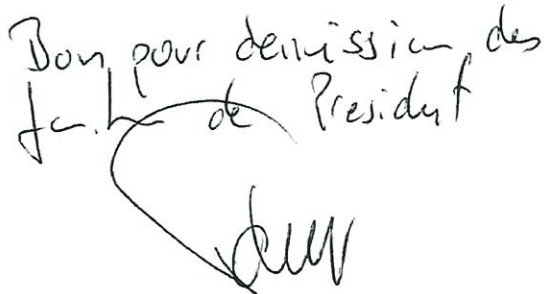 Bon pour demission des
fonctions de President